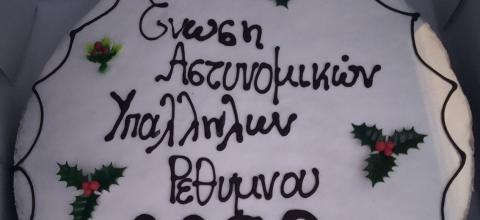 Ένωση
Αστυνομικών
Υπαλλήλων
Ρεθύμνου